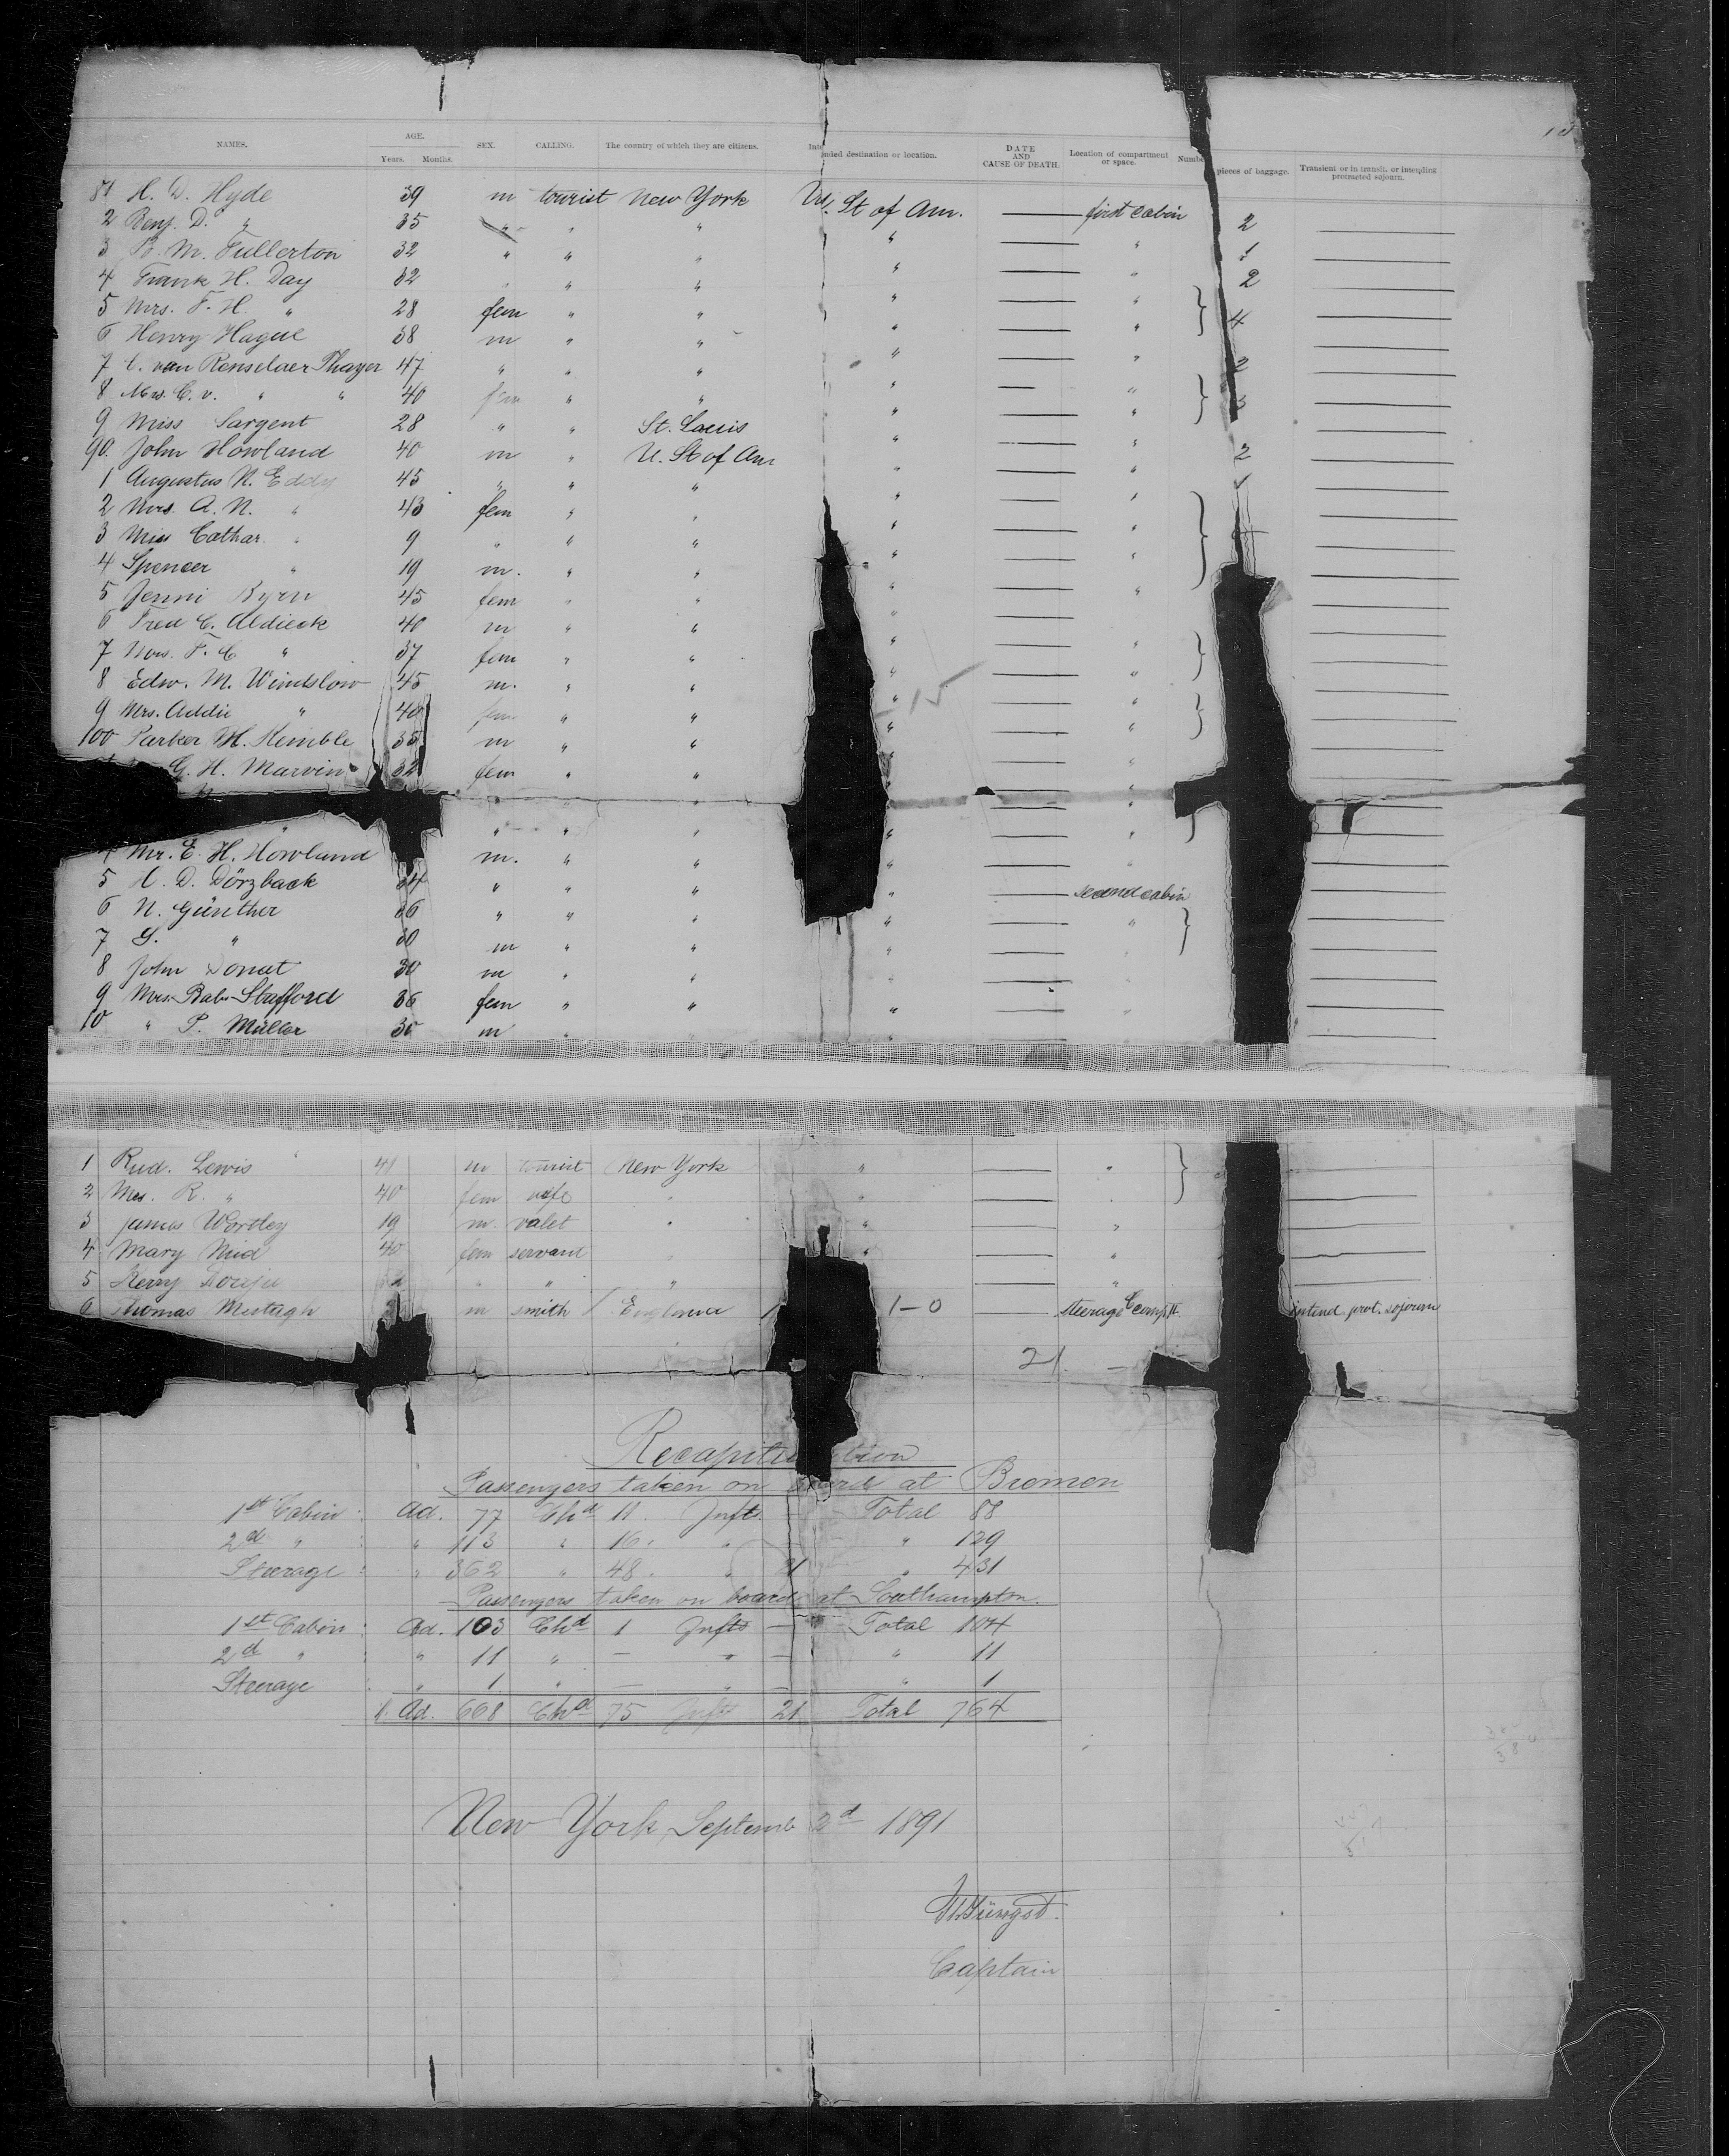 NAMES. AGE. Years. Months. SEX. CALLING. The country of which they are citizens. Intended destination or location. DATE AND CAUSE OF DEATH. Location of compartment or space. Number pieces of baggage. Transient or in transit, or intending protracted sojourn.
81 H. D. Hyde 39 m tourist New York Un. St of Am. first cabin 2
2 Benj. D. " 35 " " " " " 1
3 B. M. Fullerton 32 " " " " " 2
4 Frank H. Day 32 " " " " "
5 Mrs. F. H. " 28 fem " " " " 4
6 Henry Hague 38 m " " " " 2
7 C. van Renselaer Thayer 47 " " " " "
8 Mrs. C. v. " " 40 fem " " " "
9 Miss Sargent 28 " " St. Louis " " 2
90. John Howland 40 m " U. St of Am " "
1 Augustus N. Eddy 45 " " " " "
2 Mrs. A. N. " 43 fem " " " "
3 Miss Cathar. " 9 " " " " "
4 Spencer " 19 m. " " " "
5 Jenni Byrn 45 fem " " "
6 Fred C. Aldieck 40 m " " " "
7 Mrs. F. C " 37 fem " " " "
8 Edw. M. Wintslow 45 m. " " " "
9 Mrs. Addie " 40 fem " " " "
100 Parker H. Kemble 35 m " " " "
G. H. Marvin 32 fem " " " "
4 Mr. E. H. Howland m. " " " "
5 H. D. Dörzback 34 " " " " second cabin
6 N. Günther 36 " " " " "
7 G. " 30 m " " "
8 John Donat 30 m " " "
9 Mrs. Bab. Stafford 36 fem " " "
10 " P. Müller 30 m " "
1 Rud. Lewis 41 m tourist New York " "
2 Mrs. R. " 40 fem wife " " "
3 James Wortley 19 m. valet " " "
4 Mary Mid 40 fem servant " "
5 " " " "
6 Thomas Murtagh m smith England 1-0 steerage Comp. II intend. prot. sojourn
21
Recapitulation
Passengers taken on board at Bremen
1st Cabin: Ad. 77 Chd 11. Infts. - Total 88
2d " : " 113 " 16. " - " 129
Steerage: " 362 " 48. " 21 " 431
Passengers taken on board at Southampton.
1st Cabin: Ad. 103 Chd 1 Infts - Total 104
2d " : " 11 " - " - " 11
Steerage " 1 " - " - " 1
Ad. 668 Chd 75 Infts 21 Total 764
New York, Septemb 2d 1891
Captain